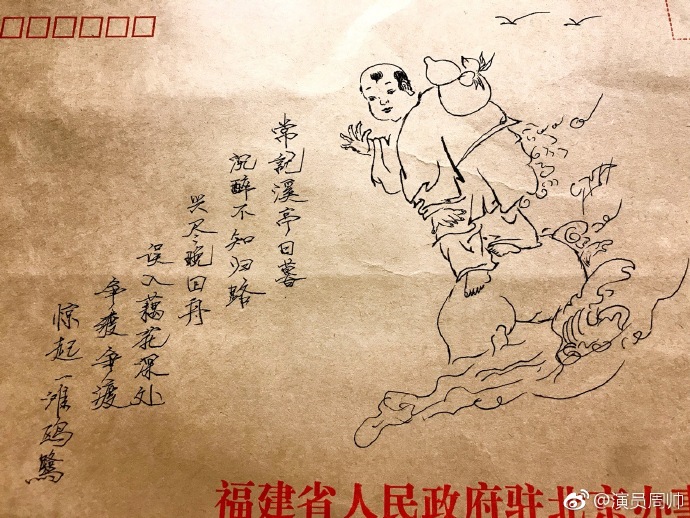 常記溪亭日暮
沉醉不知归路
兴尽晚回舟
误入藕花深处
争渡争渡
惊起一滩鸥鹭
福建省人民政府驻北京办事
@演员周帅